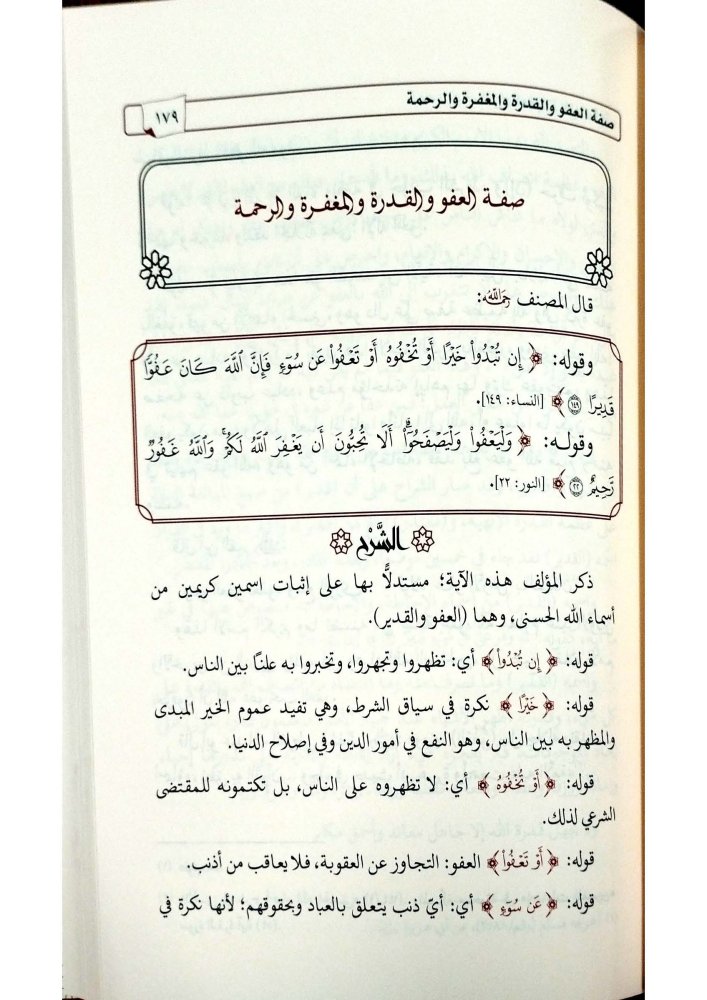 صفة العفو والقدرة والمغفرة والرحمة
١٧٩
صفة العفو والقدرة والمغفرة والرحمة
قال المصنف رحمه الله:
وقوله: ﴿إِن تُبْدُواْ خَيْرًا أَوْ تُخْفُوهُ أَوْ تَعْفُواْ عَن سُوٓءٍ فَإِنَّ ٱللَّهَ كَانَ عَفُوًّا
قَدِيرًا ١٤٩﴾ [النساء: ١٤٩].
وقوله: ﴿وَلْيَعْفُواْ وَلْيَصْفَحُوٓاْ أَلَا تُحِبُّونَ أَن يَغْفِرَ ٱللَّهُ لَكُمْ وَٱللَّهُ غَفُورٌ
رَّحِيمٌ ٢٢﴾ [النور: ٢٢].
الشَّرْح
ذكر المؤلف هذه الآية؛ مستدلًّا بها على إثبات اسمين كريمين من
أسماء الله الحسنى، وهما (العفو والقدير).
قوله: ﴿إِن تُبْدُواْ﴾ أي: تظهروا وتجهروا، وتخبروا به علنًا بين الناس.
قوله: ﴿خَيْرًا﴾ نكرة في سياق الشرط، وهي تفيد عموم الخير المبدى
والمظهر به بين الناس، وهو النفع في أمور الدين وفي إصلاح الدنيا.
قوله: ﴿أَوْ تُخْفُوهُ﴾ أي: لا تظهروه على الناس، بل تكتمونه للمقتضى
الشرعي لذلك.
قوله: ﴿أَوْ تَعْفُواْ﴾ العفو: التجاوز عن العقوبة، فلا يعاقب من أذنب.
قوله: ﴿عَن سُوٓءٍ﴾ أي: أيّ ذنب يتعلق بالعباد وبحقوقهم؛ لأنها نكرة في